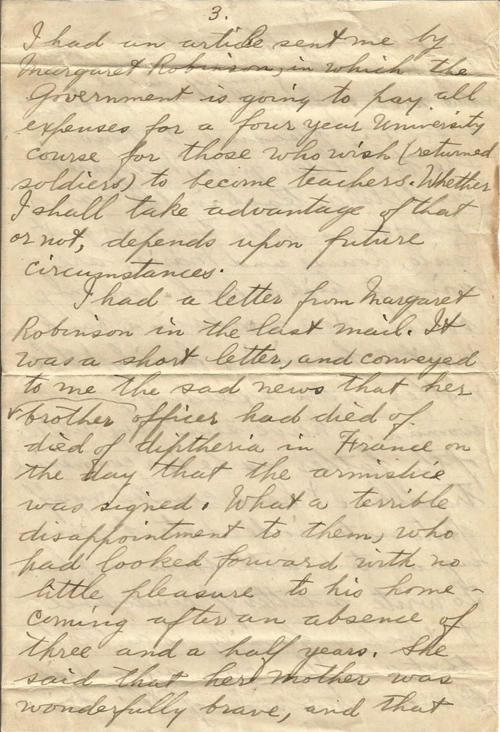 3.
I had an article sent me by
Margaret Robinson, in which the
Government is going to pay all
expenses for a four year University
course for those who wish (returned
soldiers) to become teachers. Whether
I shall take advantage of that
or not, depends upon future
circumstances.
I had a letter from Margaret
Robinson in the last mail. It
was a short letter, and conveyed
to me the sad news that her
brother officer had died of
died of diptheria in France on
the day that the armistice
was signed. What a terrible
disappointment to them, who
had looked forward with no
little pleasure to his home-
coming after an absence of
three and a half years. She
said that her mother was
wonderfully brave, and that